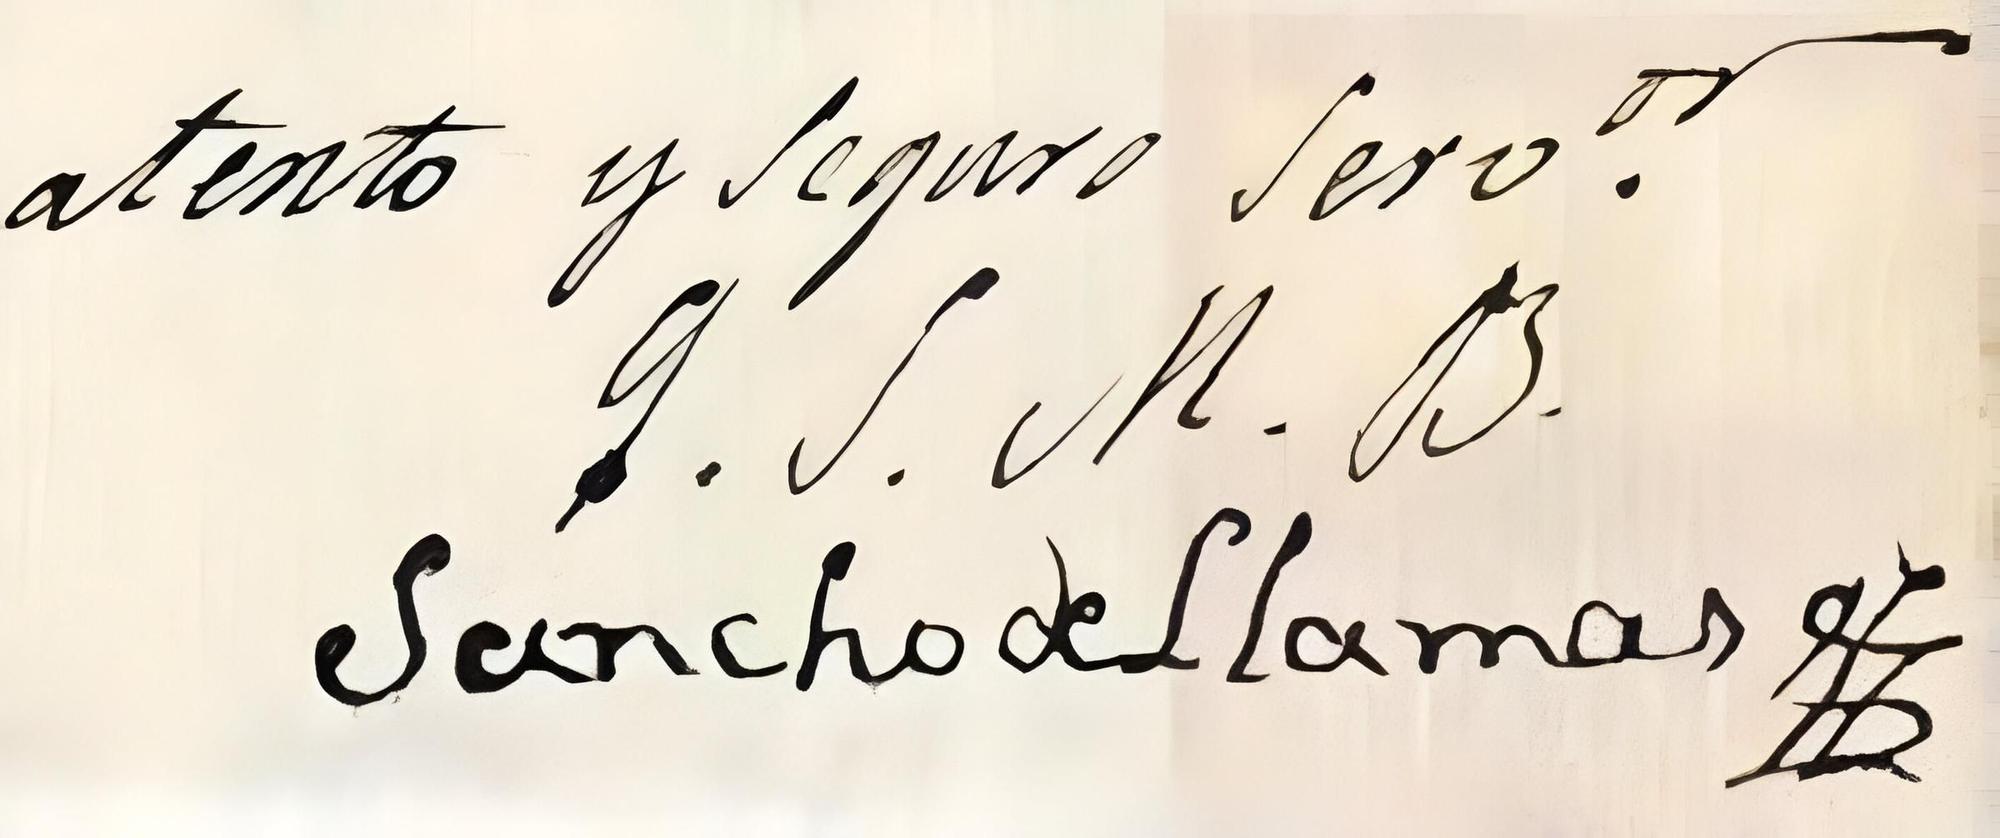 atento y seguro serv.or
q. S. M. B.
Sancho de Llamas